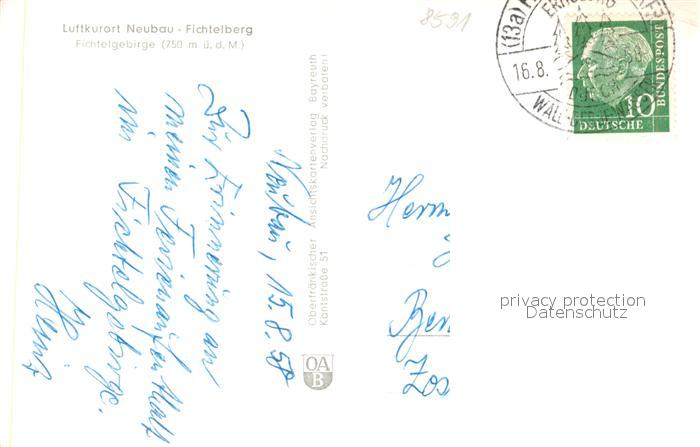 Luftkurort Neubau - Fichtelberg
Fichtelgebirge (750 m ü. d. M.)
8591
16.8.
10
DEUTSCHE
BUNDESPOST
Oberfränkischer Ansichtskartenverlag Bayreuth
Kantstraße 51 Nachdruck verboten!
OA
B
Neubau, 15.8.58
Zur Erinnerung an
meinen Ferienaufenthalt
im Fichtelgebirge.
Herm
privacy protection
Datenschutz